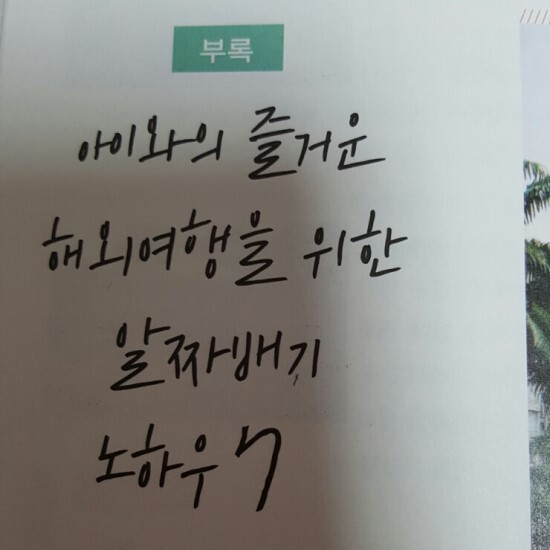 부록
아이와의 즐거운
해외여행을 위한
알짜배기
노하우 7